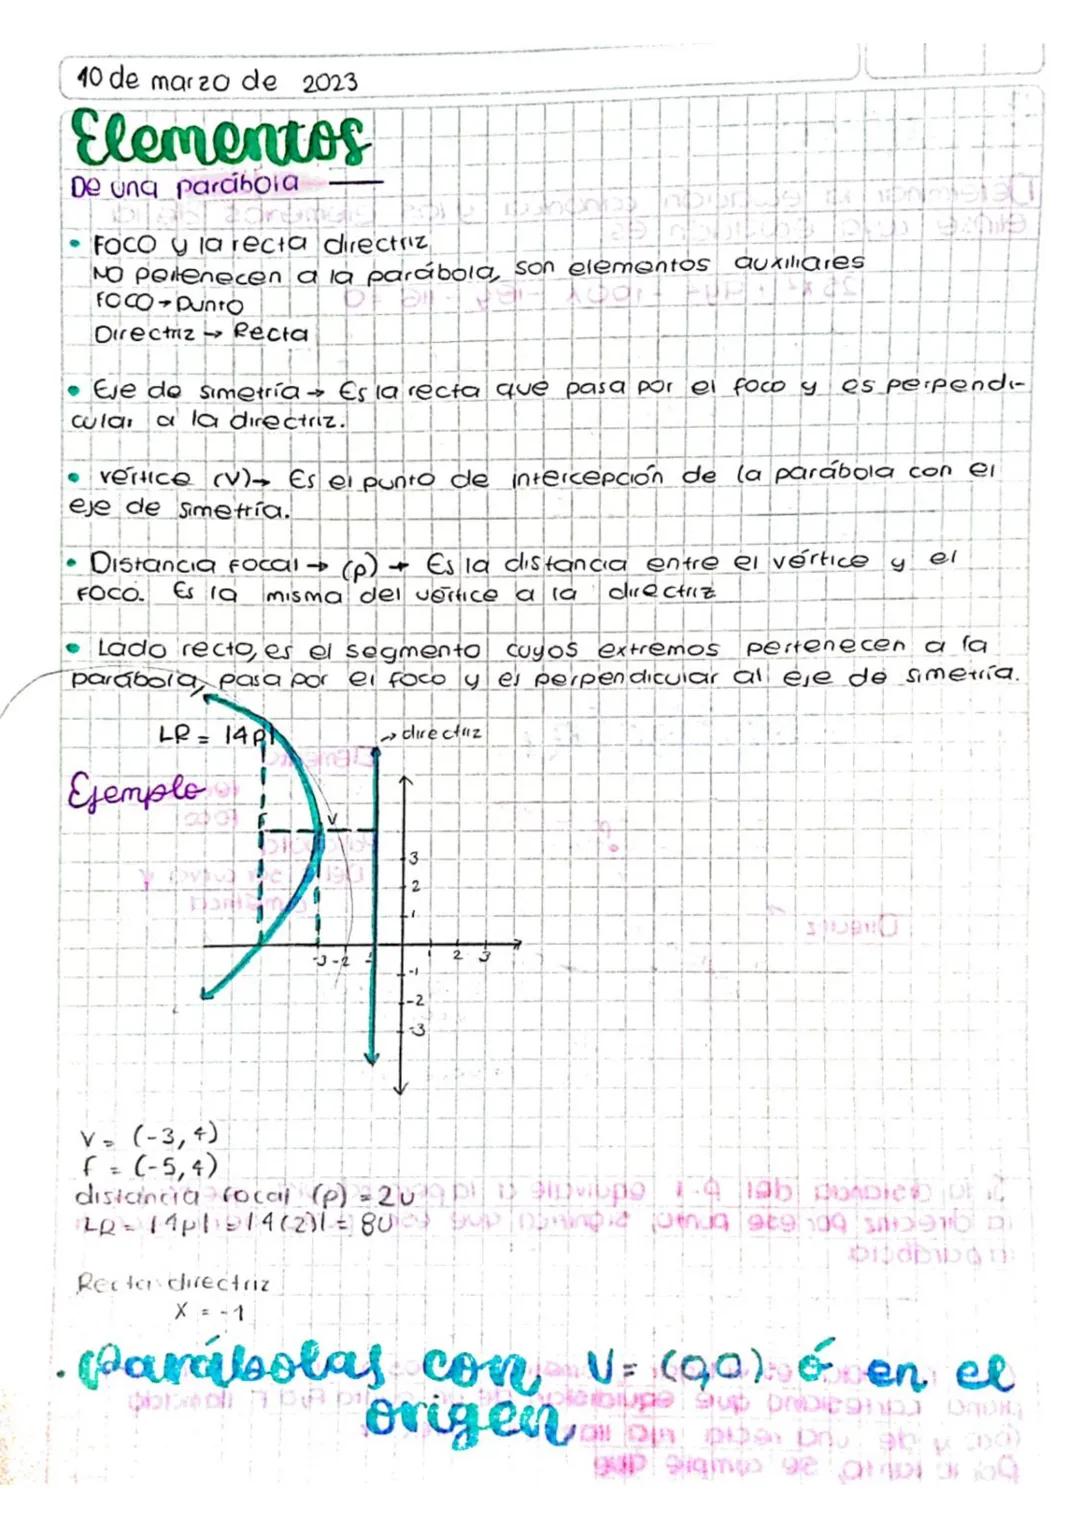 10 de marzo de 2023
Elementos
De una parábola
• Foco y la recta directriz
NO pertenecen a la parábola, son elementos auxiliares
FOCO → Punto
Directriz → Recta
• Eje de simetría → Es la recta que pasa por el foco y es perpendi-
cular a la directriz.
• vértice (V) → Es el punto de intercepción de la parábola con el
eje de simetría.
• Distancia focal → (p) → Es la distancia entre el vértice y el
FOCO. Es la misma del vértice a la directriz
• Lado recto, es el segmento cuyos extremos pertenecen a la
parábola, pasa por el foco y es perpendicular al eje de simetría.
LR = |4p|
→ directriz
Ejemplo
F
V
3
2
1
-3 -2 -1 1 2 3
-1
-2
-3
V = (-3,4)
f = (-5,4)
distancia focal (p) = 2u
LR = |4p| = |4(2)| = 8u
Recta directriz
X = -1
• Parábolas con V = (0,0) ó en el
origen